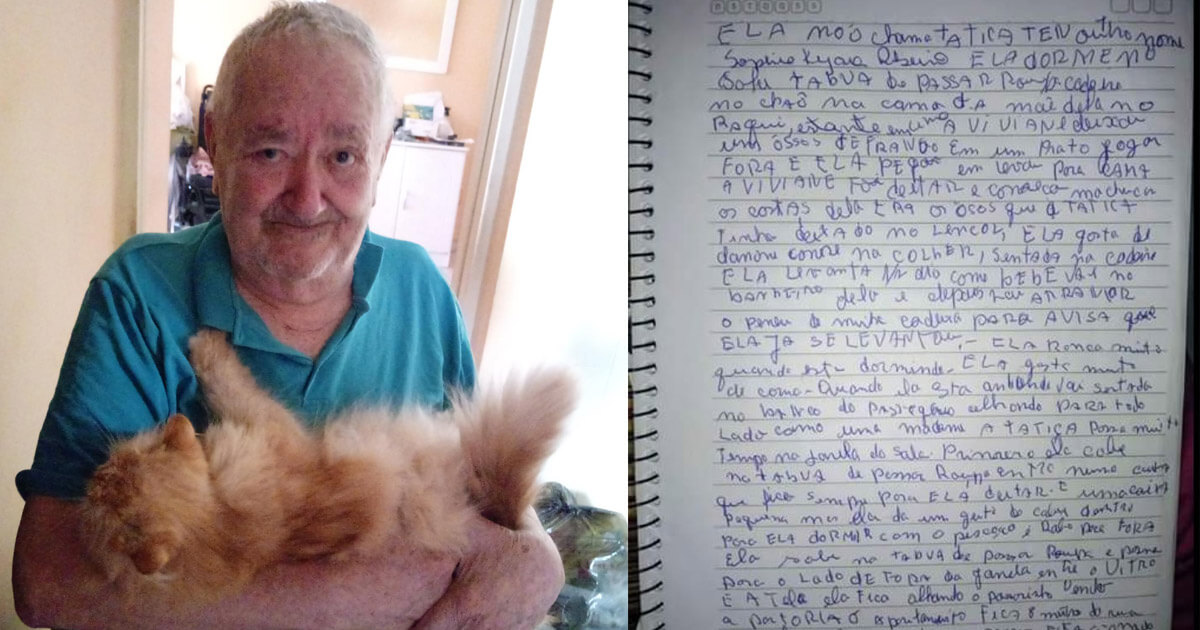 ELA NÃO chama TATICA TEN outro nome
ELA DORME NO
Sofá TABUA de PASSAR Roupa cadeira
no chaõ na cama DA mãe dela no
Raqui, estante em cima A VIVIANE deixou
uns ÓSSOS DE FRANGO Em um Prato jogar
FORA E ELA PEgou em levou Para CAMA
A VIVIANE Foi deitar e começa machucar
as costas dela ERA os ósos que a TATICA
Tinha deitado no LENÇOL, ELA gosta de
danone come na COLHER, sentada na cadeira
ELA LEVANTA como BEBE VAI no
BANHEIRO dela e depois vai ARRANHAR
o pneu da minha cadeira PARA AVISA que
ELA JA SE LEVANTOU, - ELA Ronca muito
quando está dormindo - ELA gosta muito
de carro - Quando ela esta andando vai sentada
no banco do passageiro olhando PARA todo
Lado como uma madame A TATICA Passa muito
Tempo na janela da sala. Primeiro ela sobe
na TABUA de passar Roupa numa caixa
que fica sempre para ELA deitar. E uma caixa
Pequena mas ela da um geito de caber dentro
Para ELA dORMIR com o pescoço e Rabo Para FORA
Ela sobe na TABUA de passar Roupa e passa
para o LADO DE FORA da janela entre o VITRO
E A Tela ela Fica olhando o passarinho Vendo
a PORTARIA o apartamento FICA